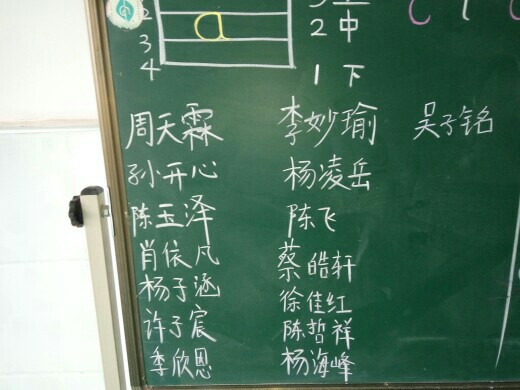 2
3
4
a
3
2 中
1 下
周天霖 李妙瑜 吴子铭
孙开心 杨凌岳
陈玉泽 陈飞
肖依凡 蔡皓轩
杨子涵 徐佳红
许子宸 陈哲祥
季欣恩 杨海峰